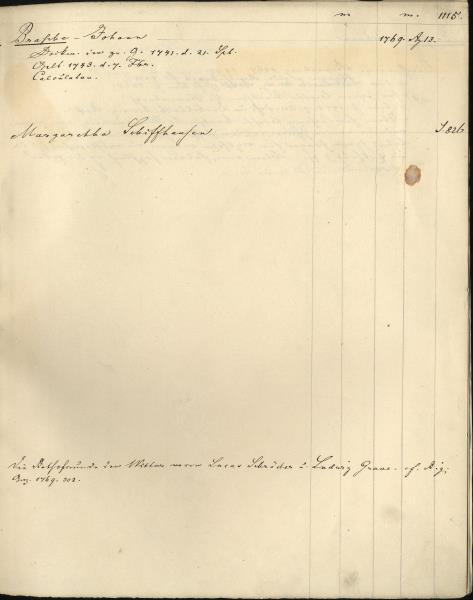 m m. 1115.
Brascke - Johann 1769. Ap 13.
in gr. G. 1741. d. 21. Spt.
1743. d. 7. Fbr.
Calculator.
Margaretha Schiffhausen S. 826
Die Rathsfreunde der Wittwe waren Lucas Schröder u Ludwig Grave. cf. Rig.
Anz. 1769. 202.